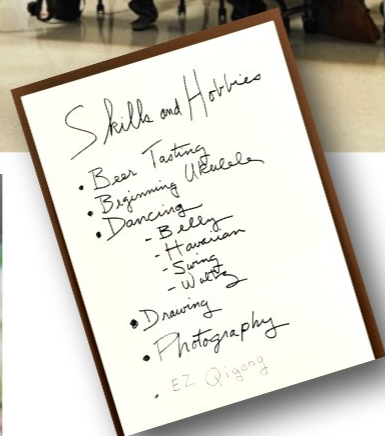 Skills and Hobbies
• Beer Tasting
• Beginning Ukulele
• Dancing
- Belly
- Hawaiian
- Swing
- Waltz
• Drawing
• Photography
• EZ Qigong